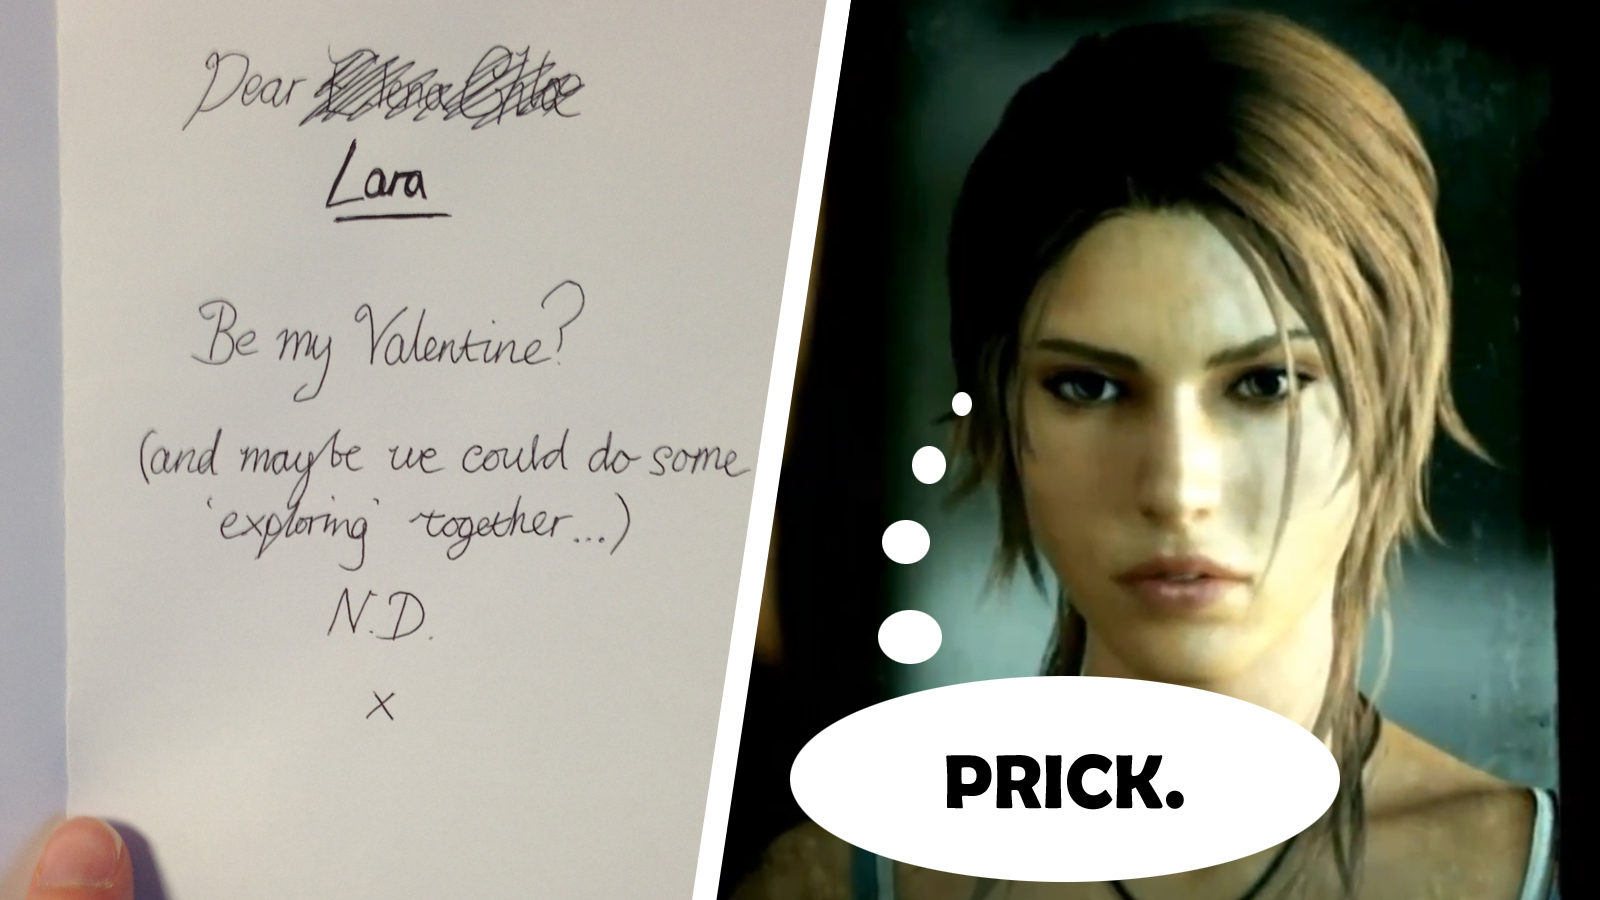 Dear Elena Chloe
Lara
Be my Valentine?
(and maybe we could do some
'exploring' together...)
N.D.
x
PRICK.